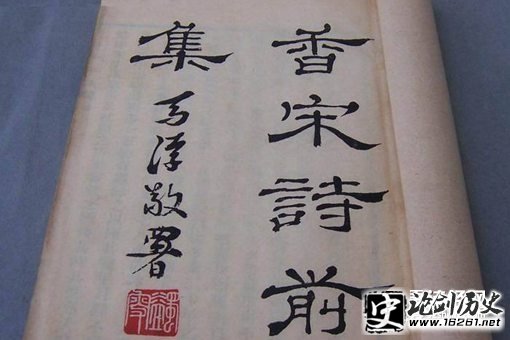 香宋詩前
集
敬署
史 论剑历史
www.16261.net